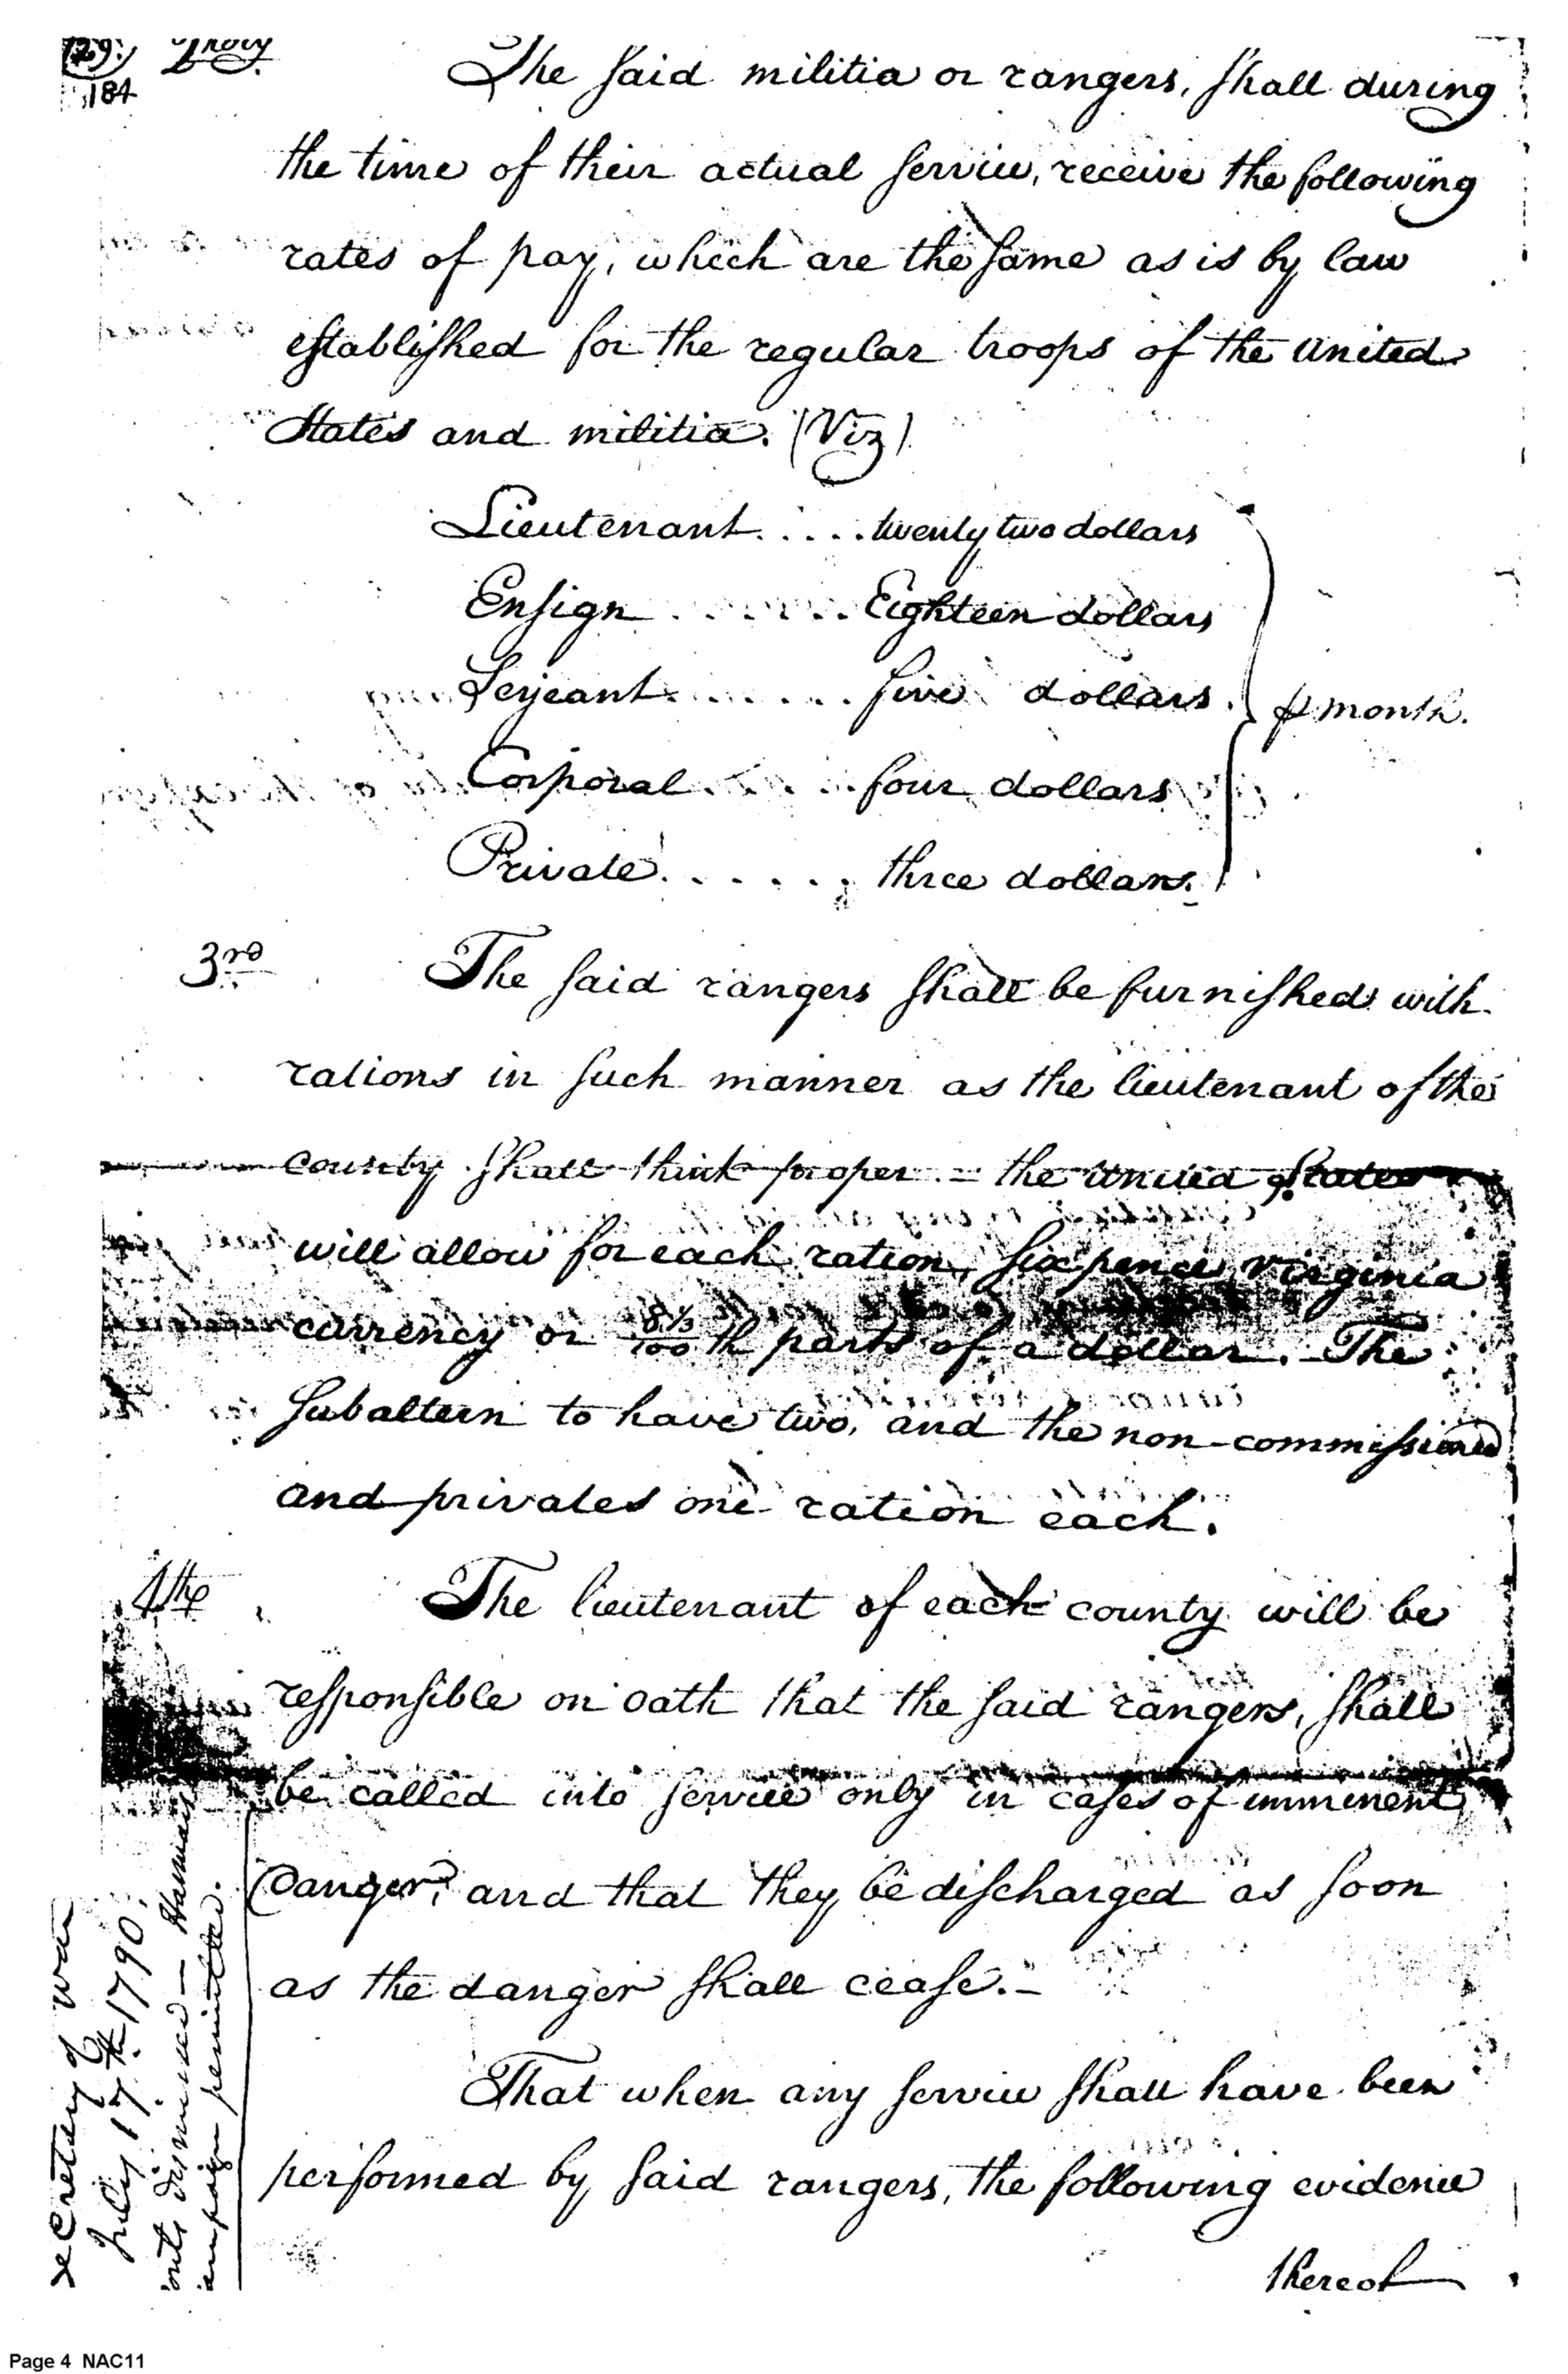 129.
184
The said militia or rangers, shall during
the time of their actual service, receive the following
rates of pay, which are the same as is by law
established for the regular troops of the United
States and militia. (Viz)
Lieutenant ..... twenty two dollars
Ensign ....... Eighteen dollars
Serjeant ....... five dollars.
⅌ month.
Corporal ...... four dollars
Private ...... three dollars.
3rd
The said rangers shall be furnished with
rations in such manner as the lieutenant of the
county shall think proper. = the United States
will allow for each ration, six pence virginia
currency or 8⅓/100th parts of a dollar. The
Subaltern to have two, and the non-commissioned
and privates one ration each.
4th
The lieutenant of each county will be
responsible on oath that the said rangers, shall
be called into service only in cases of imminent
Danger, and that they be discharged as soon
as the danger shall cease.-
That when any service shall have been
performed by said rangers, the following evidence
thereof
ecretary of War
July 17th 1790.
outs dismissed - Harmar's
ampaign permitted.
Page 4 NAC11